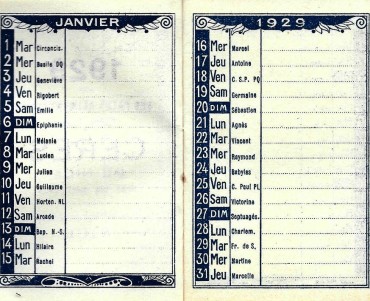 JANVIER
1 Mar Circoncis.
2 Mer Basile DQ
3 Jeu Geneviève
4 Ven Rigobert
5 Sam Emilie
6 DIM Epiphanie
7 Lun Mélanie
8 Mar Lucien
9 Mer Julien
10 Jeu Guillaume
11 Ven Horten. NL
12 Sam Arcade
13 DIM Bap. N-S.
14 Lun Hilaire
15 Mar Rachel
1929
16 Mer Marcel
17 Jeu Antoine
18 Ven C. S.P. PQ
19 Sam Germaine
20 DIM Sébastien
21 Lun Agnès
22 Mar Vincent
23 Mer Raymond
24 Jeu Babylas
25 Ven C. Paul PL
26 Sam Victorine
27 DIM Septuagés.
28 Lun Charlem.
29 Mar Fr. de S.
30 Mer Martine
31 Jeu Marcelle